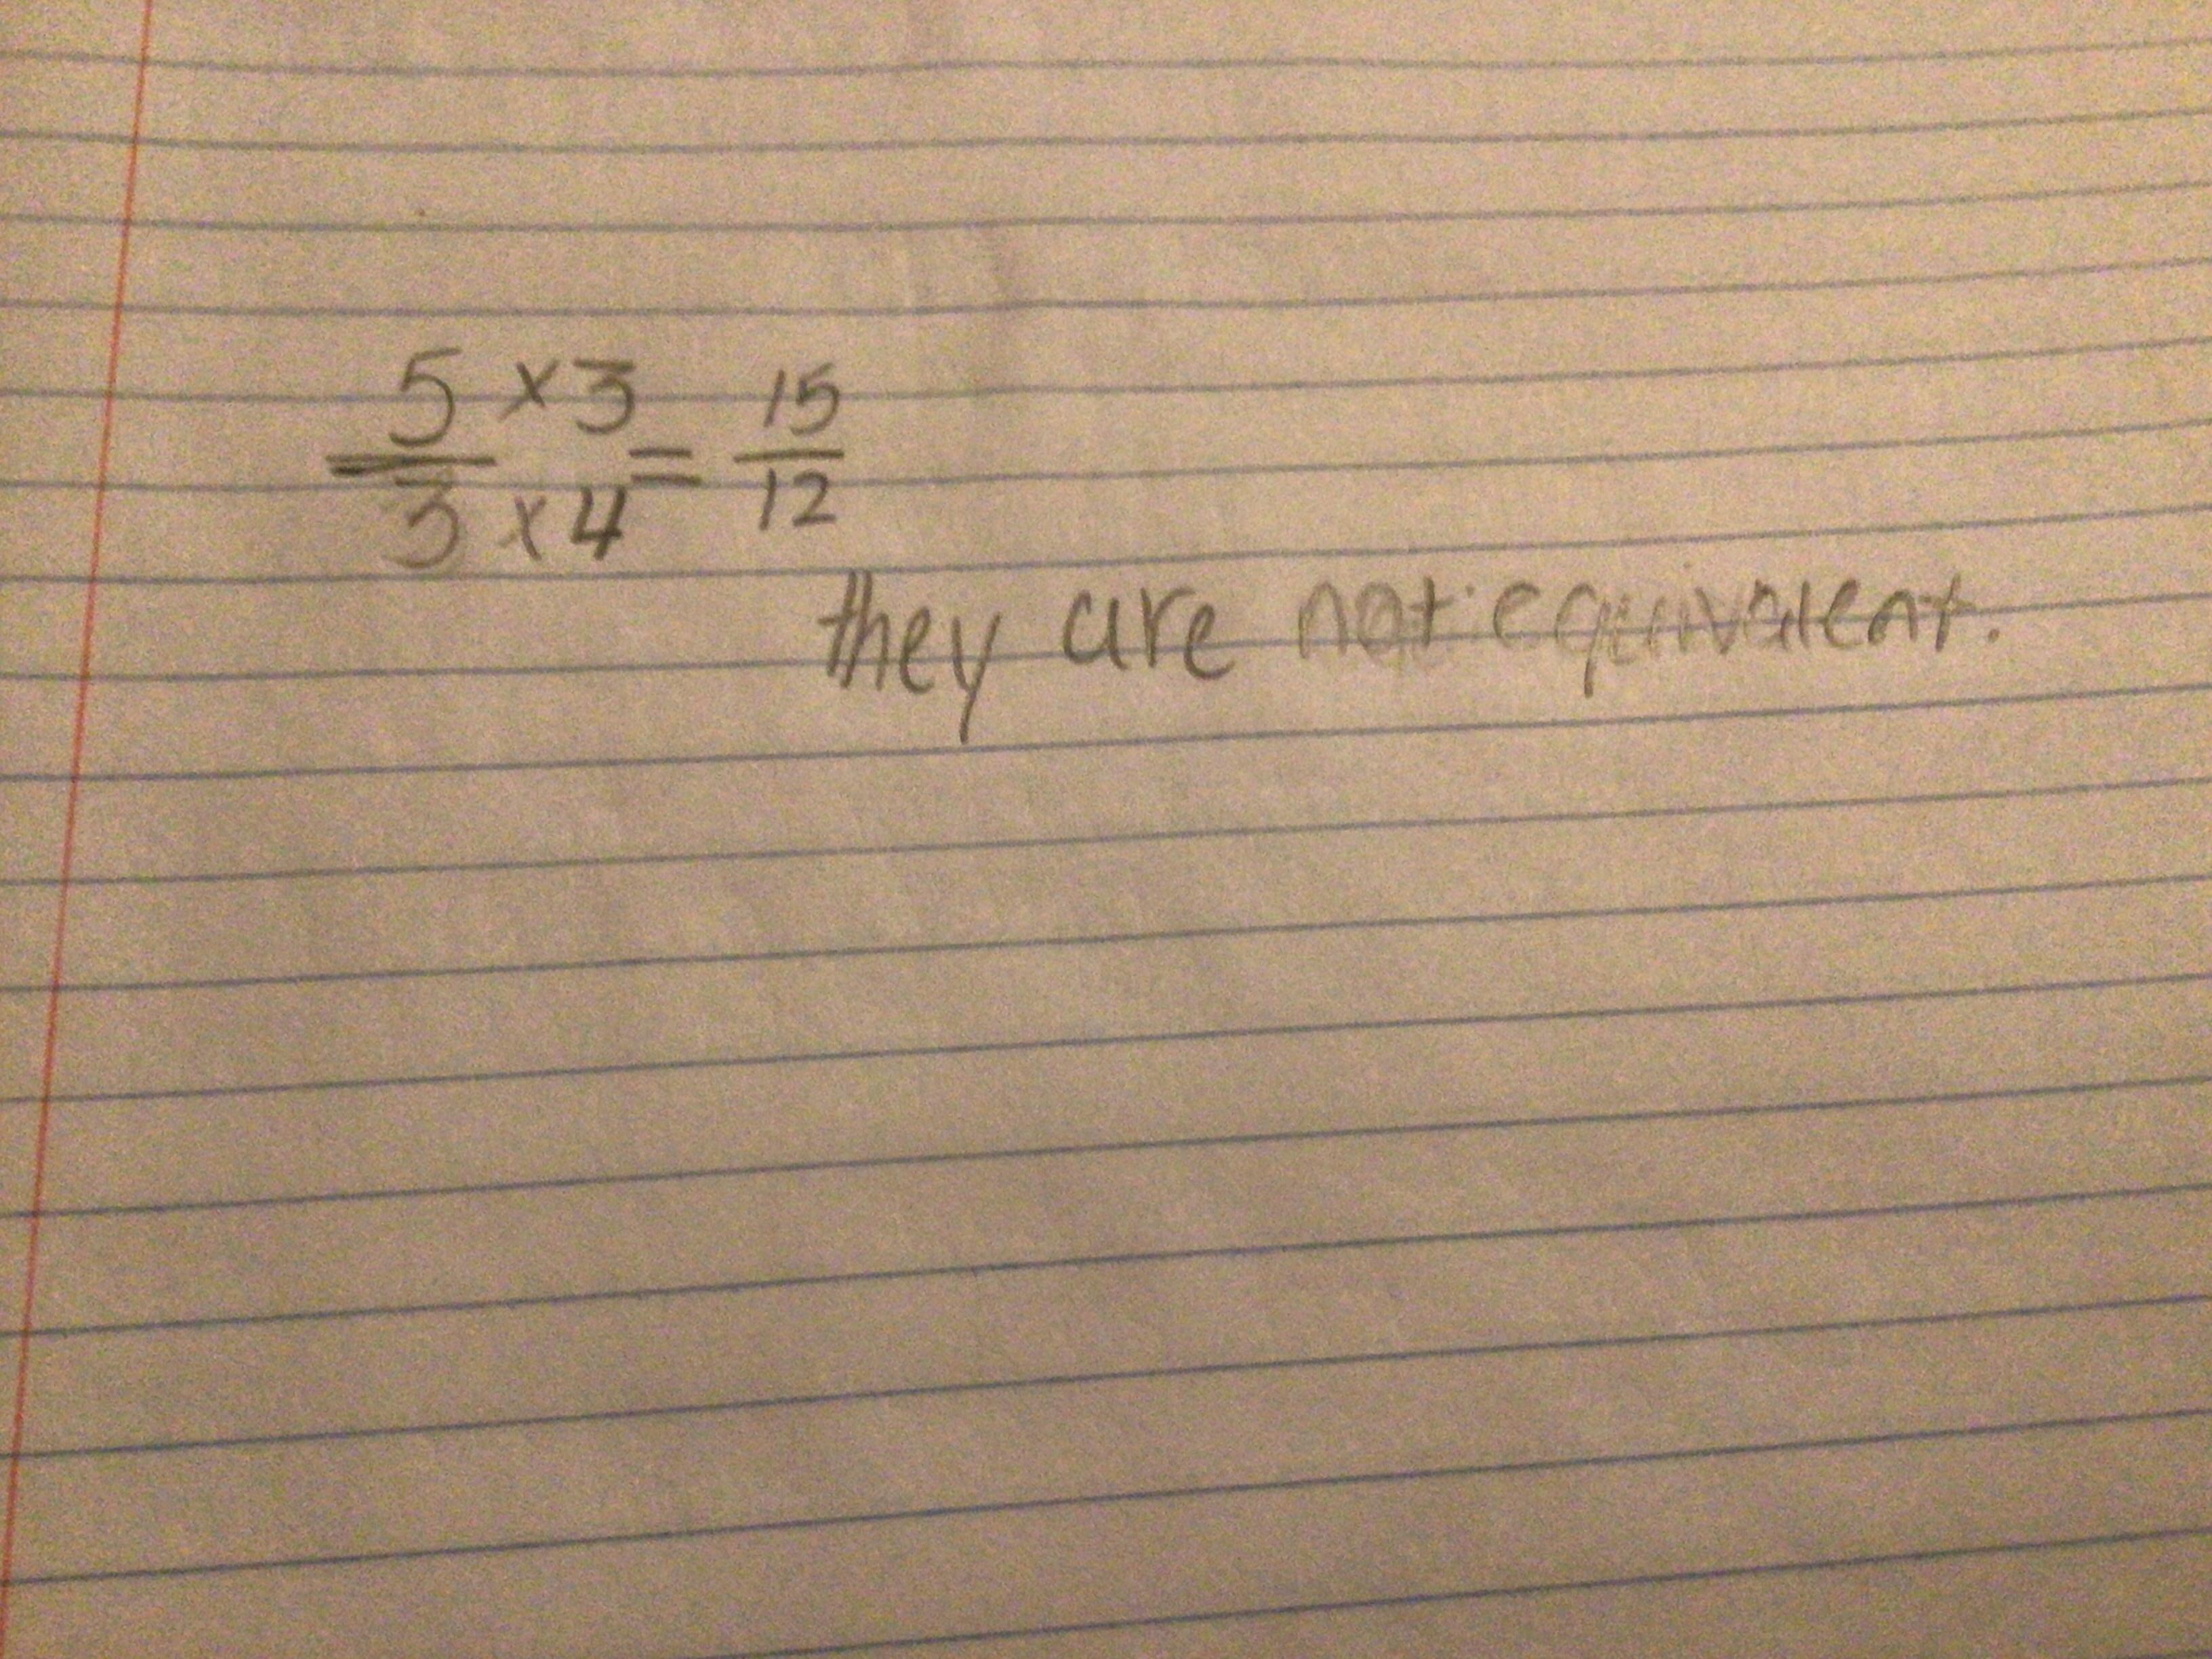 5 × 3 = 15
3 × 4 12
they are not equivalent.